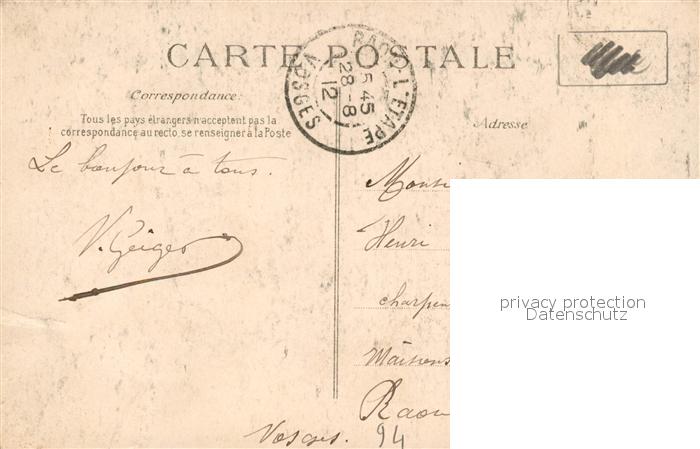 CARTE POSTALE
RAON-L'ETAPE
5·45
28-8
12
VOSGES
Correspondance:
Tous les pays étrangers n'acceptent pas la
correspondance au recto, se renseigner à la Poste
Le bonjour à tous.
V. Geiger
Adresse
Monsi
Henri
charpen
Maisons
Raon
Vosges. 94
privacy protection
Datenschutz